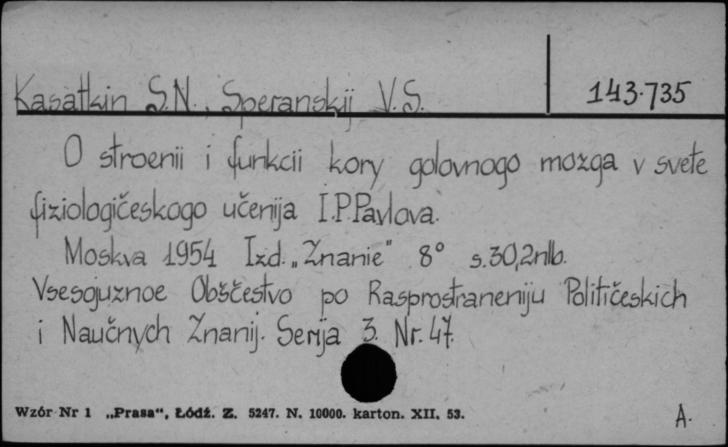 Kasatkin S.N., Speranskij V.S.
143.735
O stroenii i funkcii kory golovnogo mozga v svete
fiziologičeskogo učenija I.P.Pavlova.
Moskva 1954 Izd. „Znanie" 8° s.30,2nlb.
Vsesojuznoe Obščestvo po Rasprostraneniju Političeskich
i Naučnych Znanij. Serija 3. Nr. 47.
Wzór Nr 1 „Prasa“, Łódź. Z. 5247. N. 10000. karton. XII. 53.
A.